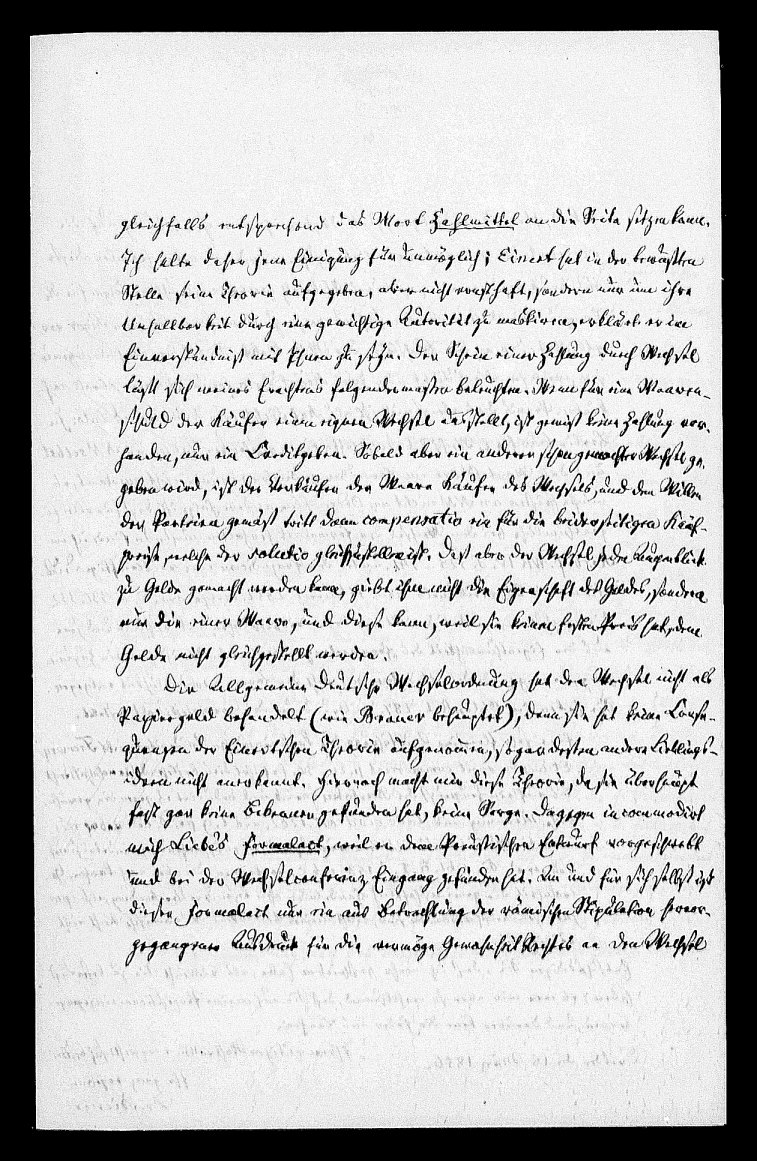 gleichfalls entsprechend das Wort Zahlmittel an die Seite setzen kann.
Ich halte daher jene Einigung für unmöglich; Einert hat in der bewußten
Stelle seine Theorie aufgegeben, aber nicht ernsthaft, sondern nur um ihre
Unhaltbarkeit durch eine gewichtige Autorität zu maskiren, erklärt er im
Einverständniß mit Ihnen zu seyn. Der Schein einer Zahlung durch Wechsel
läßt sich meines Erachtens folgendermaßen beleuchten. Wenn für eine Waaren-
schuld der Käufer einen eignen Wechsel ausstellt, ist gewiß keine Zahlung vor-
handen, nur ein Creditgeben. Sobald aber ein anderer schon gemachter Wechsel ge-
geben wird, ist der Verkäufer der Waare Käufer des Wechsels, und dem Willen
der Parteien gemäß tritt dann compensatio ein für die beiderseitigen Kauf-
preise, welche der solutio gleichgestellt ist. Daß aber der Wechsel jeden Augenblick
zu Gelde gemacht werden kann, giebt ihm nicht die Eigenschaft des Geldes, sondern
nur die einer Waare, und diese kann, weil sie keinen festen Preis hat, dem
Gelde nicht gleichgestellt werden.
Die Allgemeine deutsche Wechselordnung hat den Wechsel nicht als
Papiergeld behandelt (wie Brauer behauptet), denn sie hat keine Conse-
quenzen der Einertschen Theorie aufgenommen, sogar dessen andere Lieblings-
ideen nicht anerkannt. Hiernach macht mir diese Theorie, da sie überhaupt
fast gar keine Bekenner gefunden hat, keine Sorge. Dagegen incommodirt
mich Liebe's Formalact, weil er dem Preußischen Entwurf vorgeschwebt
und bei der Wechselconferenz Eingang gefunden hat. An und für sich selbst ist
dieser Formalact nur ein aus Betrachtung der römischen Stipulation hervor-
gegangener Ausdruck für die vermöge Gewohnheitsrechts an den Wechsel